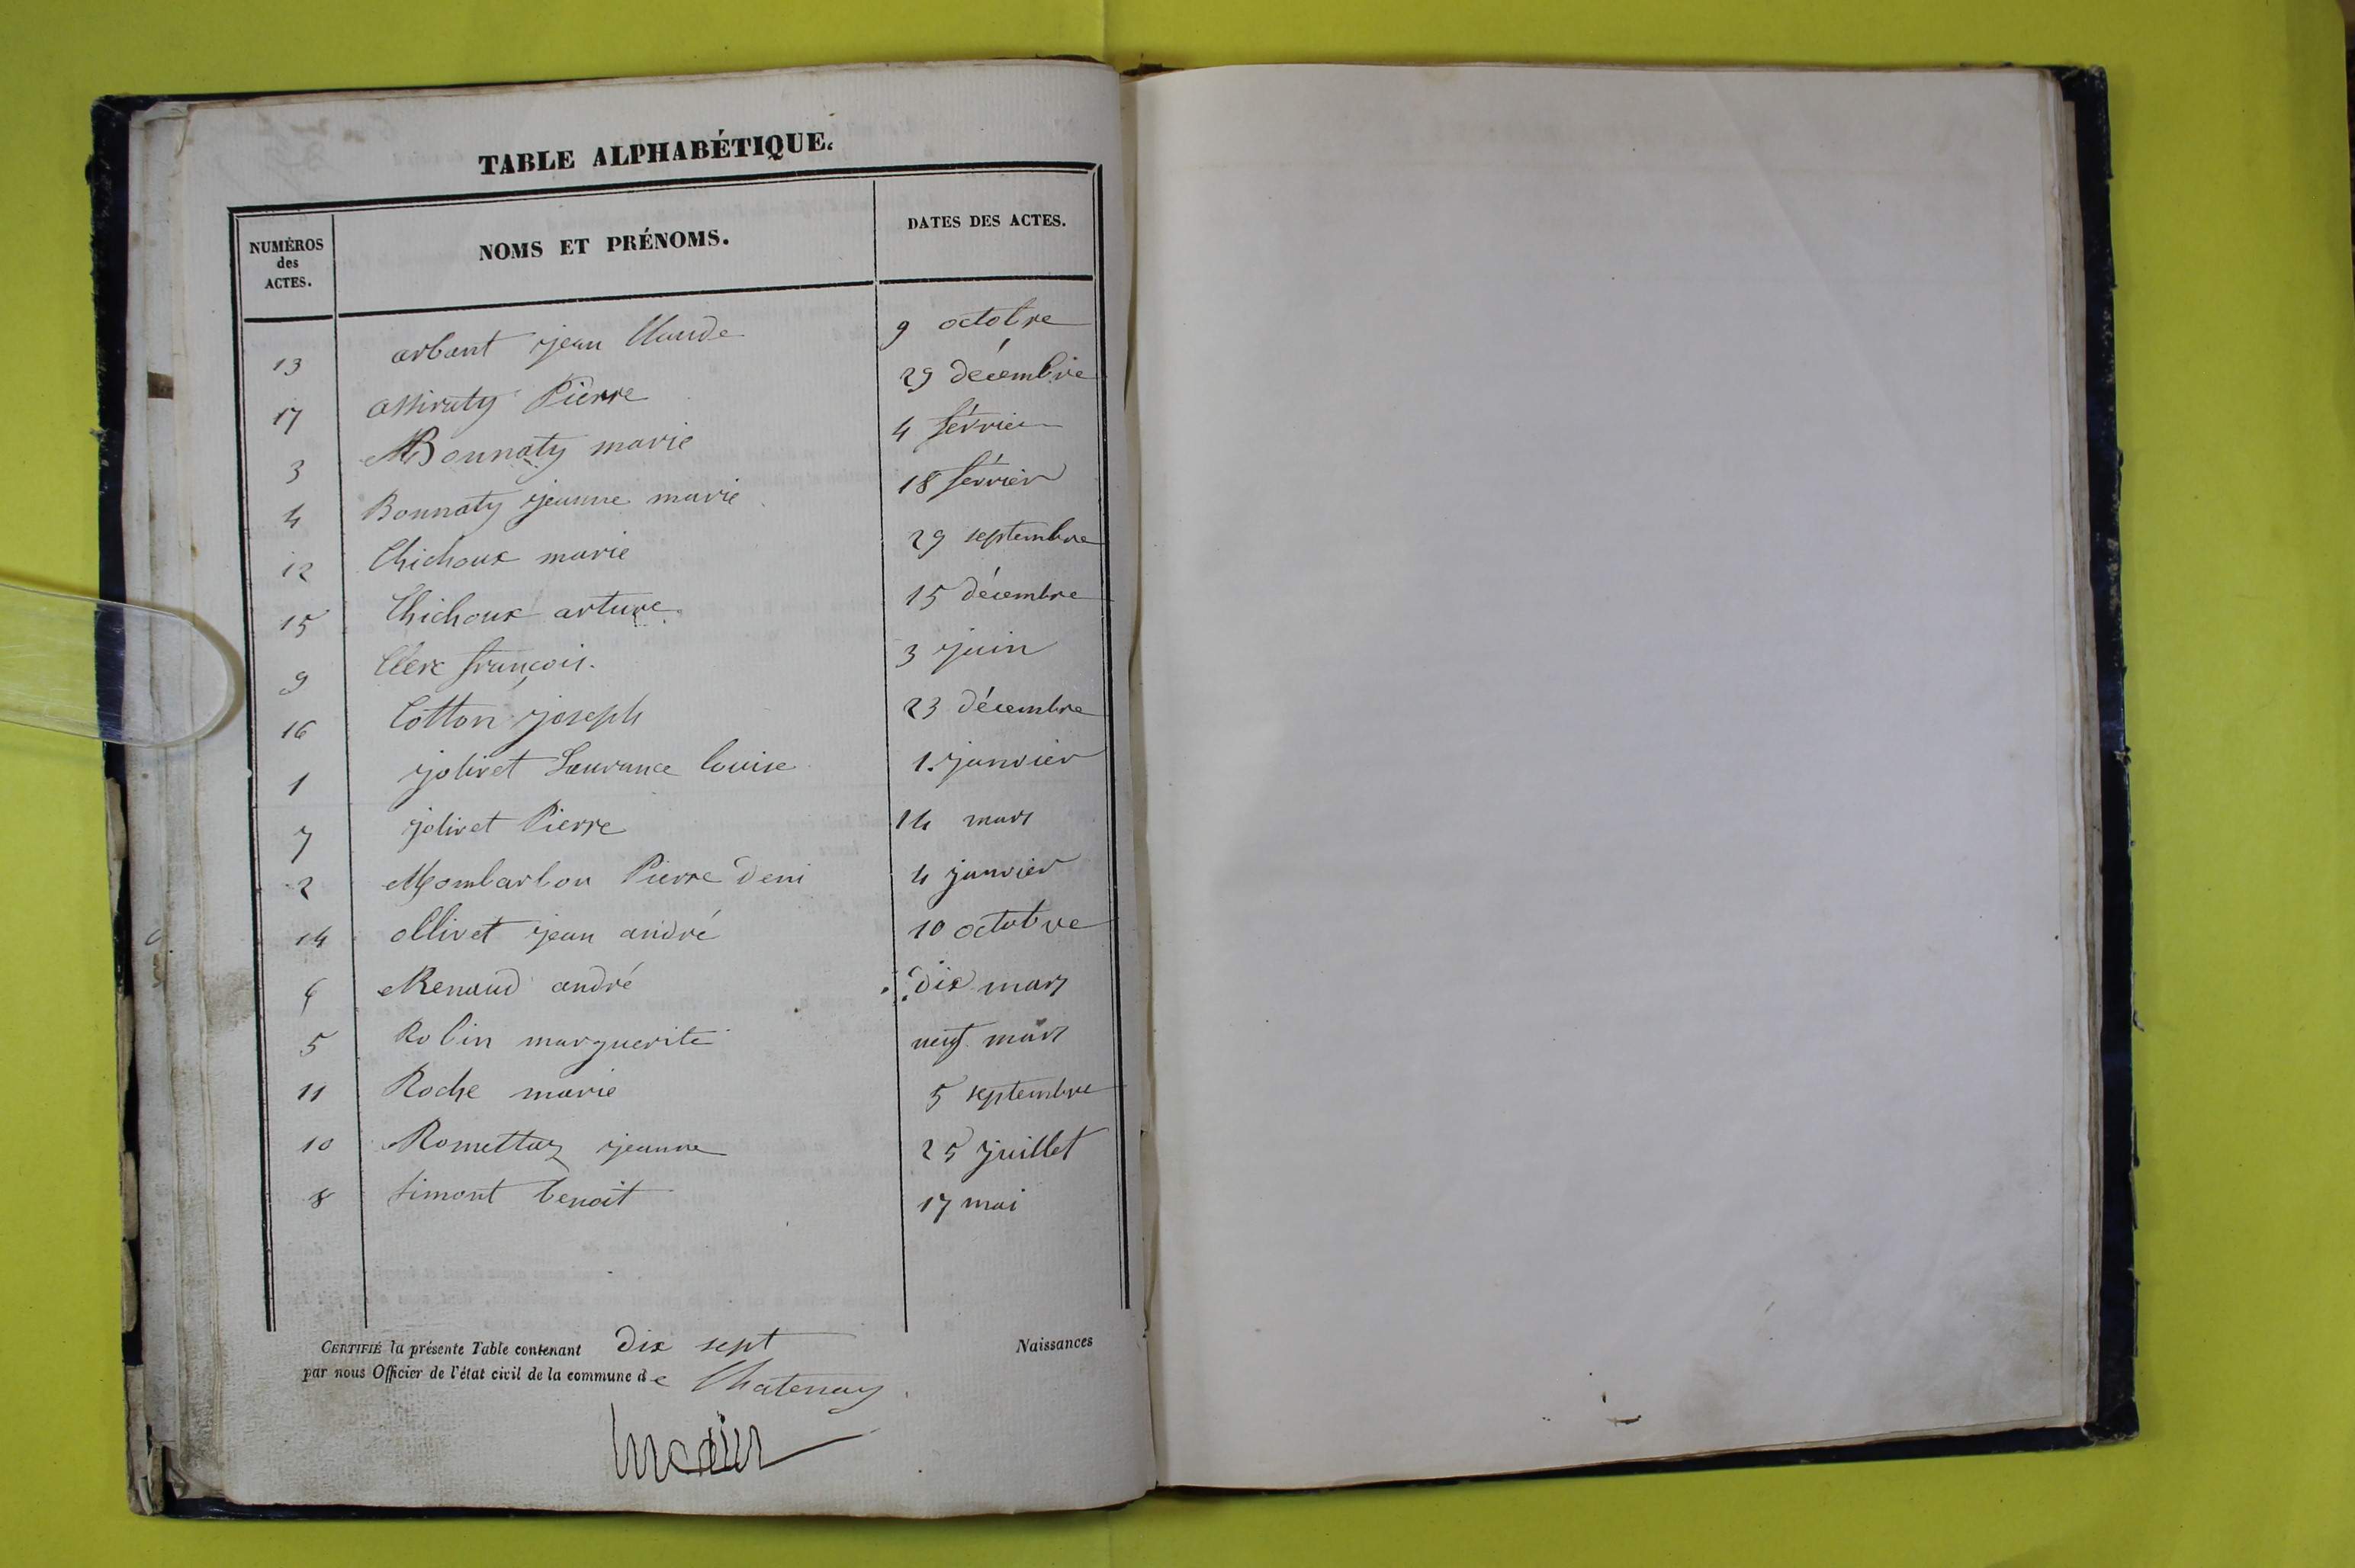 TABLE ALPHABÉTIQUE.
NUMÉROS des ACTES. NOMS ET PRÉNOMS. DATES DES ACTES.
13 arbant jean Claude 9 octobre
17 Pierre 29 décembre
3 Bonnaty marie 4 février
4 Bonnaty jeanne marie 18 février
12 Chichoux marie 29 septembre
15 Chichoux arture 15 décembre
9 Clerc françois. 3 juin
16 Cotton joseph 23 décembre
1 jolivet Laurance louise 1. janvier
7 jolivet Pierre 14 mars
2 Mombarbon Pierre Deni 4 janvier
14 ollivet jean andré 10 octobre
6 Renaud andré dix mars
5 Robin marguerite neuf mars
11 Roche marie 5 septembre
10 jeanne 25 juillet
8 simont benoit 17 mai
CERTIFIÉ la présente Table contenant dix sept Naissances
par nous Officier de l'état civil de la commune de Chatenay